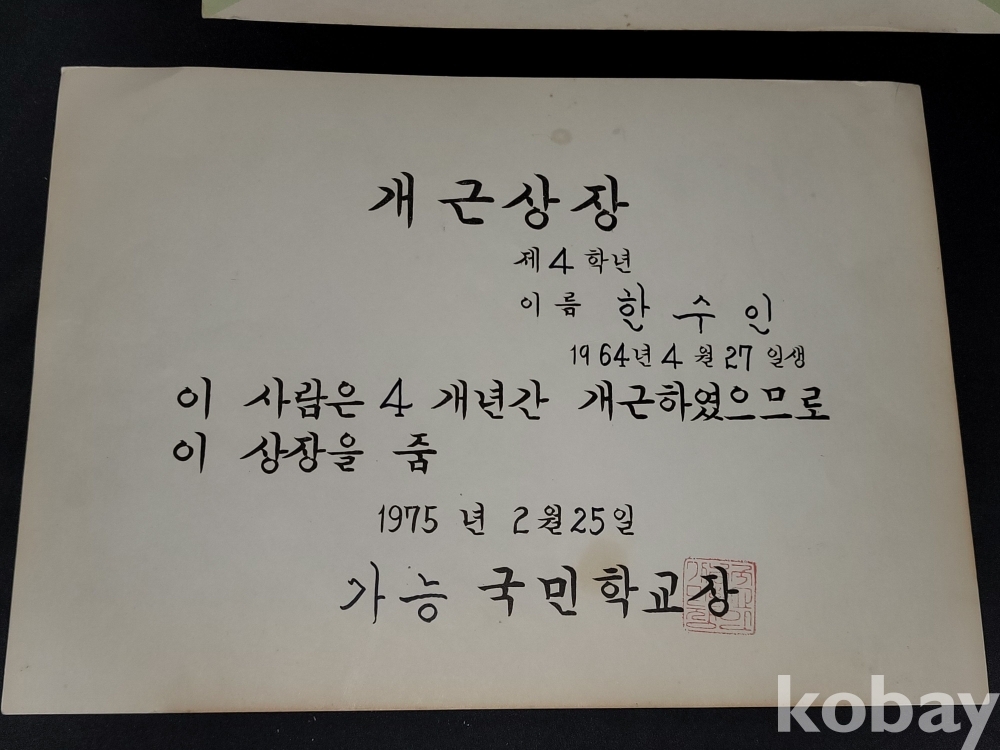 개근상장
제4학년
이름 한수인
1964년 4월 27일생
이 사람은 4개년간 개근하였으므로
이 상장을 줌
1975년 2월 25일
가능 국민학교장
kobay